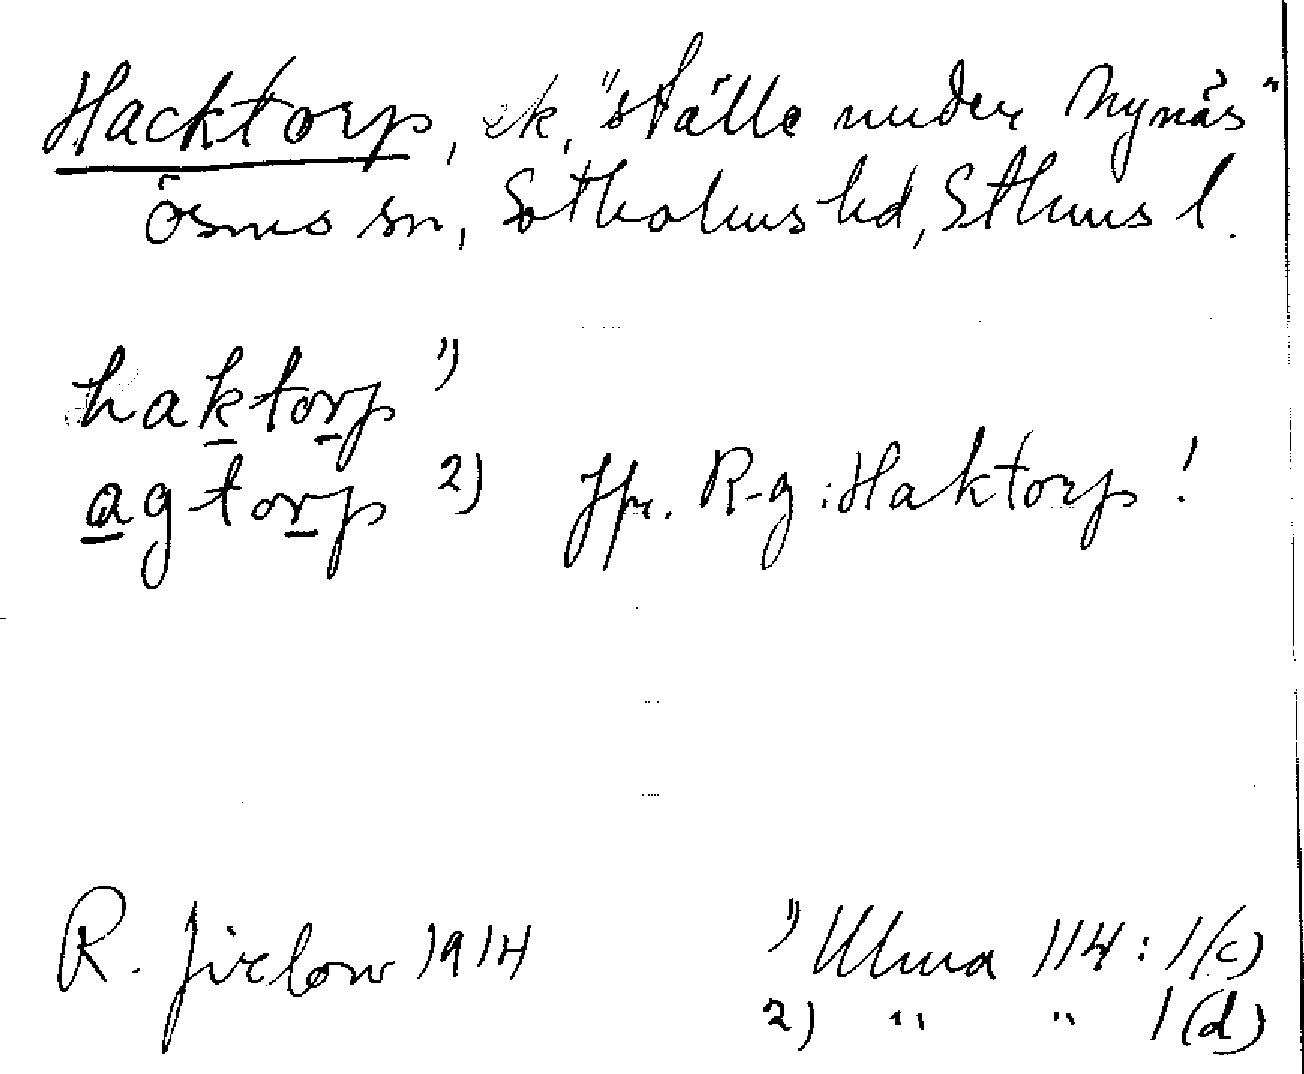 Hacktorp, ek, "ställe under Nynäs"
Ösmo sn, Sotholms hd, Sthms l.
haktorp 1)
agtorp 2) Jfr. R-g: Haktorp!
R. Jirlow 1914 1) Ulma 114: 1(c)
2) " " 1(d)